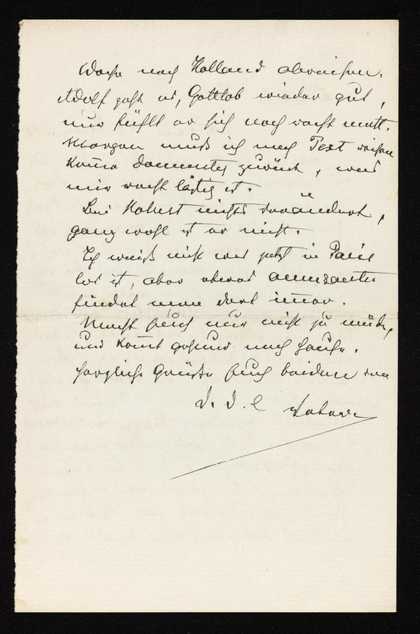 Woche nach Holland abreisen.
Adolf geht es, Gottlob wieder gut,
nur fühlt er sich noch recht matt.
Morgen muß ich nach Pest reisen
komme Donnerstag zurück, was
mir recht lästig ist.
Bei Robert nichts verändert,
ganz wohl ist er nicht.
Ich weiß nicht was jetzt in Paris
los ist, aber etwas amusantes
findet man dort immer.
Macht Euch nur nicht zu müde,
und kommt gesund nach Hause.
Herzliche Grüße Euch beiden von